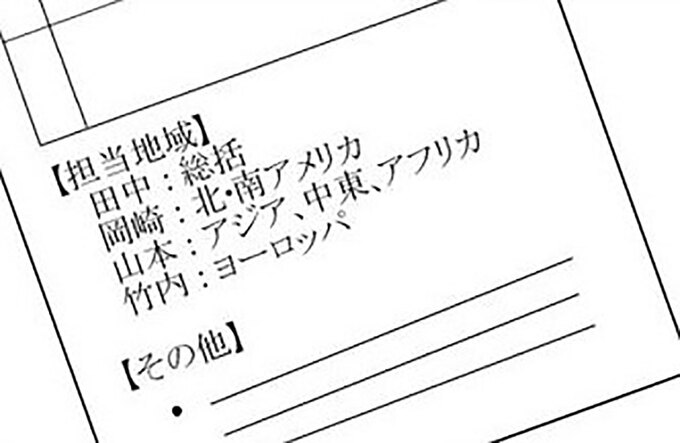 【担当地域】
田中：総括
岡崎：北・南アメリカ
山本：アジア、中東、アフリカ
竹内：ヨーロッパ
【その他】
•